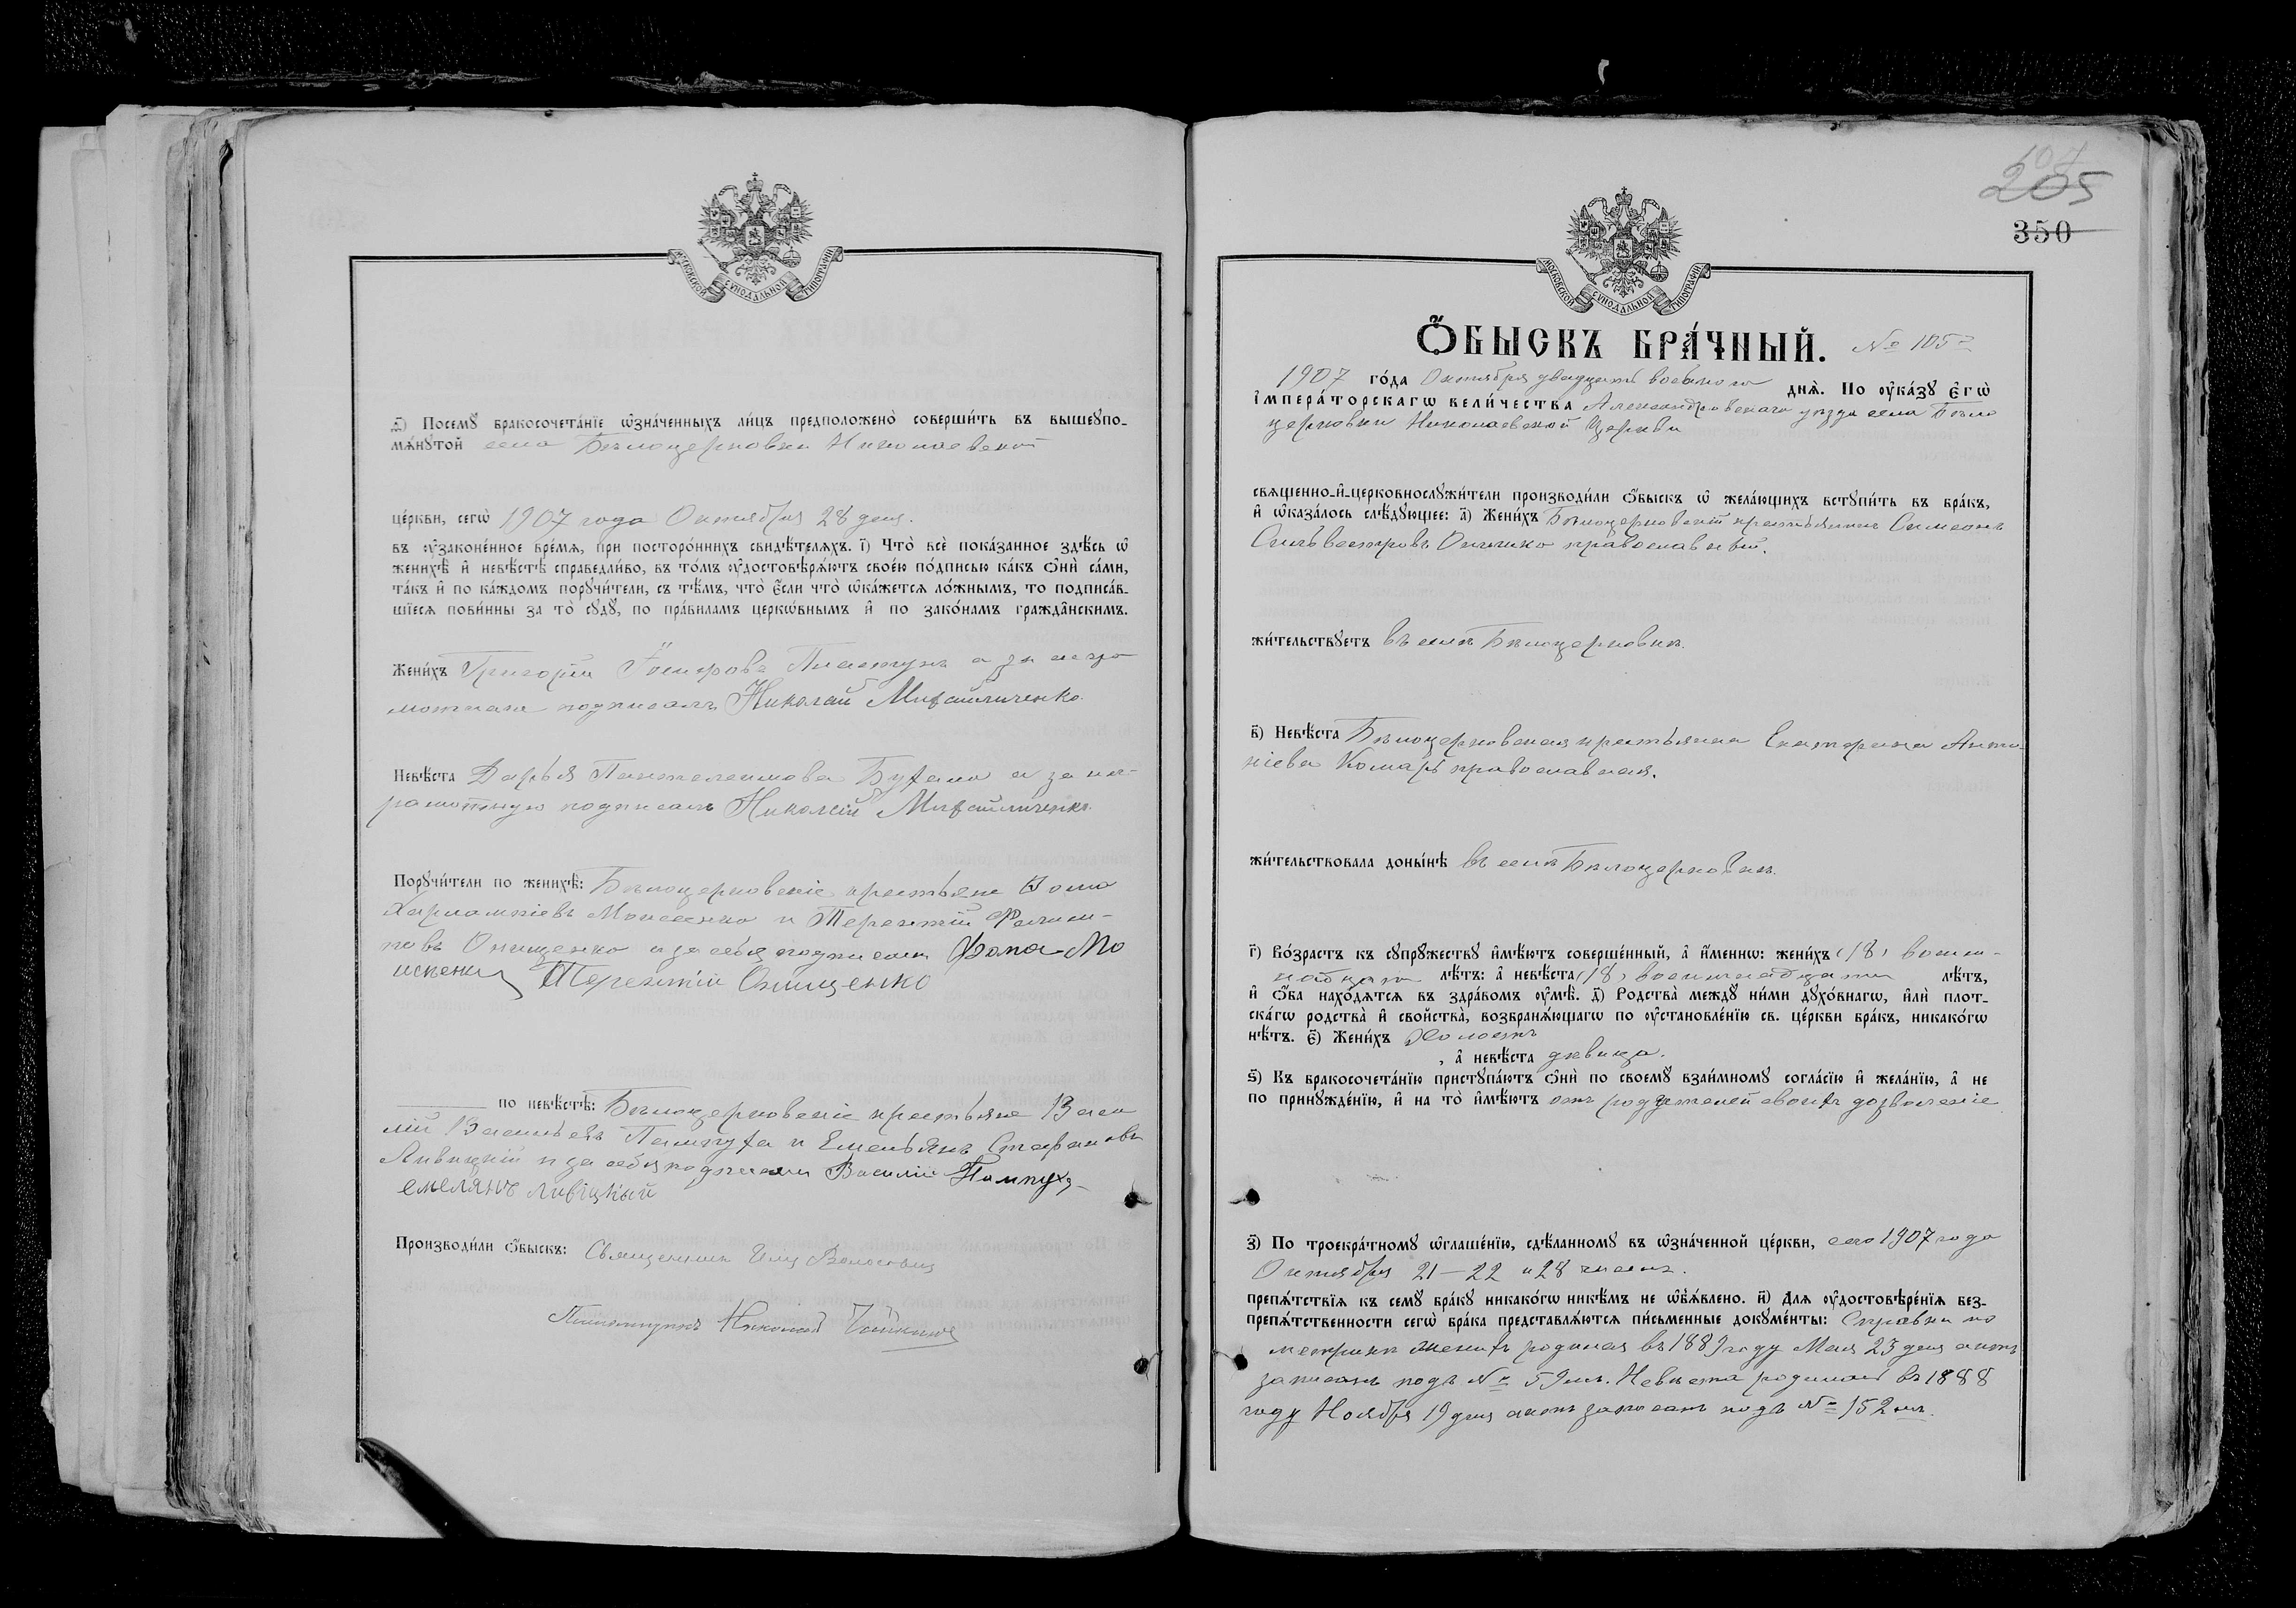 МОСКОВСКОЙ СѴНОДАЛЬНОЙ ТИПОГРАФІИ
ѳ҃) Посемꙋ̀ бракосочета́нїе ѡ҆зна́ченныхъ ли́цъ предположено̀ соверши́ть въ вышеꙋпо-
мѧ́нꙋтой села Бѣлоцерковки Николаевской
це́ркви, сегѡ̀ 1907 года Октября 28 дня.
въ ᲂу҆зако́ненное вре́мѧ, при посторо́ннихъ свидѣ́телѧхъ. і҃) Что̀ всѐ пока́занное здѣ́сь ѡ҆
женихѣ̀ и҆ невѣ́стѣ справедли́во, въ то́мъ ᲂу҆достовѣрѧ́ютъ свое́ю по́дписью ка́къ ѻ҆нѝ са́ми,
та́къ и҆ по ка́ждомъ порꙋчи́тели, съ тѣ́мъ, что̀ є҆́сли что̀ ѡ҆ка́жетсѧ ло́жнымъ, то подписа́в-
шїесѧ пови́нны за то̀ сꙋдꙋ̀, по пра́виламъ церкѡ́внымъ и҆ по зако́намъ гражда̂нскимъ.
Жени́хъ Григорій Іосифовъ Пластунъ а за негра
мотнаго подписалъ Николай Михайличенко
Невѣ́ста Дарья Пантелеимова Бухало а за не-
грамотную подписалъ Николай Михайличенко
Порꙋчи́тели по женихѣ̀: Бѣлоцерковскіе крестьяне Ѳома
Харлампіевъ Моисеенко и Терентій Филип-
повъ Онищенко и за себя подписали Фома Мо
исеенко Терентій Онищенко
по невѣ́стѣ: Бѣлоцерковскіе крестьяне Васи
лій Васильевъ Пампуха и Емельянъ Стефановъ
Ливицкій и за себя подписали Василій Пампуха
Емелянъ Ливіцкый
Производи́ли ѻ҆́быскъ: Священникъ Илія
Псаломщикъ Николай
107
205
350
МОСКОВСКОЙ СѴНОДАЛЬНОЙ ТИПОГРАФІИ
Ѻ҆́БЫСКЪ БРА́ЧНЫЙ. № 105й
1907 го́да Октября двадцать восьмого днѧ̀. По ᲂу҆ка́зꙋ Є҆гѡ̀
І҆мпера́торскагѡ вели́чества Александровскаго уѣзда села Бѣло
церковки Николаевской Церкви
свѧщенно-и҆-церковнослꙋжи́тели производи́ли ѻ҆́быскъ ѡ҆ жела́ющихъ встꙋпи́ть въ бра́къ,
и҆ ѡ҆каза́лось слѣ́дꙋющее: а҃) Жени́хъ Бѣлоцерковскій крестьянинъ Симеонъ
Сильвестровъ Онишко православный.
жи́тельствꙋетъ въ селѣ Бѣлоцерковкѣ.
в҃) Невѣ́ста Бѣлоцерковская крестьянка Екатерина Анто-
ніева Комаръ православная.
жи́тельствовала доны́нѣ въ селѣ Бѣлоцерковкѣ.
г҃) Во́зрастъ къ сꙋпрꙋ́жествꙋ и҆мѣ́ютъ соверше́нный, а҆ и҆́менно: жени́хъ (18) восем-
надцать лѣ́тъ: а҆ невѣ́ста (18) восемнадцати лѣ́тъ,
и҆ ѻ҆́ба нахо́дѧтсѧ въ здра́вомъ ᲂу҆мѣ̀. д҃) Родства̀ междꙋ̀ ни́ми дꙋхо́внагѡ, и҆лѝ плот-
ска́гѡ родства̀ и҆ сво́йства, возбранѧ́ющагѡ по ᲂу҆становле́нїю св. це́ркви бра́къ, никако́гѡ
нѣ́тъ. є҃) Жени́хъ Холостъ
, а҆ невѣ́ста дѣвица.
ѕ҃) Къ бракосочета́нїю пристꙋпа́ютъ ѻ҆нѝ по своемꙋ̀ взаи́мномꙋ согла́сїю и҆ жела́нїю, а҆ не
по принꙋжде́нїю, и҆ на то̀ и҆мѣ́ютъ отъ родителей своихъ дозволеніе
з҃) По троекра́тномꙋ ѡ҆глаше́нїю, сдѣ́ланномꙋ въ ѡ҆зна́ченной це́ркви, сего 1907 года
Октября 21–22 и 28 чиселъ.
препѧ́тствїѧ къ семꙋ̀ бра́кꙋ никако́гѡ никѣ́мъ не ѡ҆б̾ѧ́влено. и҃) Длѧ ᲂу҆достовѣре́нїѧ без-
препѧ́тственности сегѡ̀ бра́ка представлѧ́ютсѧ пи́сьменные докꙋме́нты: Справки по
метрикѣ женихъ родился въ 1889 году Мая 23 дня актъ
записанъ подъ № 59мъ. Невѣста родилась въ 1888
году Ноября 19 дня актъ записанъ подъ № 152мъ.